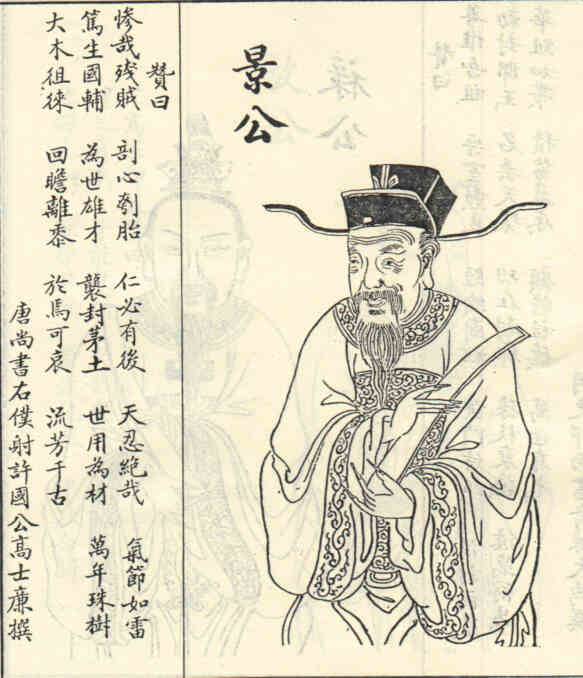 景公
贊曰
慘哉残賊 剖心刳胎 仁必有後 天忍絶哉 氣節如雷
篤生國輔 為世雄才 襲封茅土 世用為材 萬年珠樹
大木徂徠 回瞻離黍 於馬可哀 流芳千古
唐尚書右僕射許國公高士廉撰